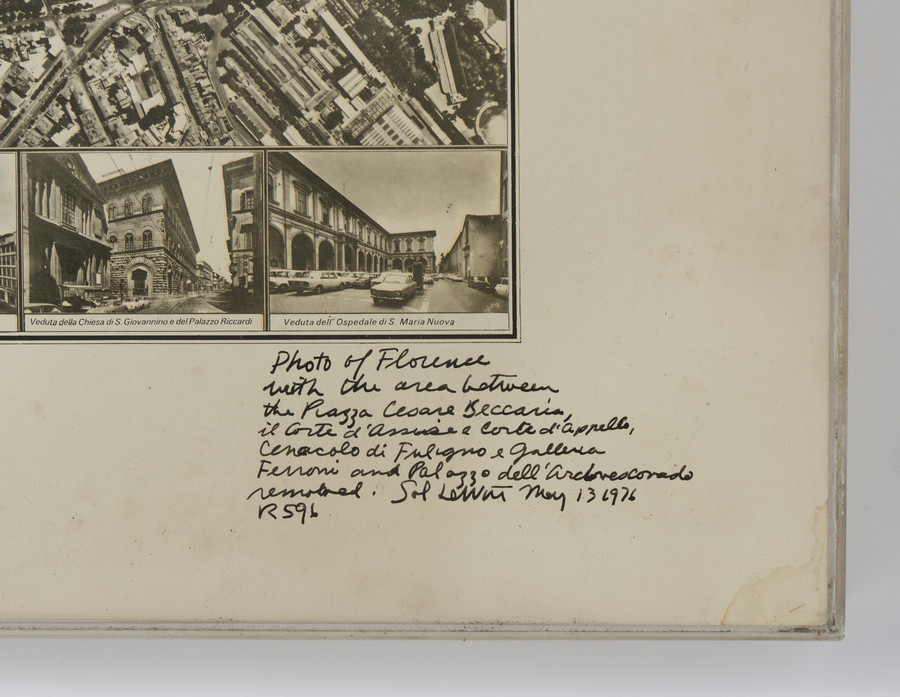 Veduta della Chiesa di S. Giovannino e del Palazzo Riccardi
Veduta dell' Ospedale di S. Maria Nuova
Photo of Florence
with the area between
the Piazza Cesare Beccaria,
il Corte d'Assise e Corte d'Appello,
Cenacolo di Fuligno e Galleria
Ferroni and Palazzo dell'Arcivescovado
removed. Sol LeWitt May 13 1976
R596